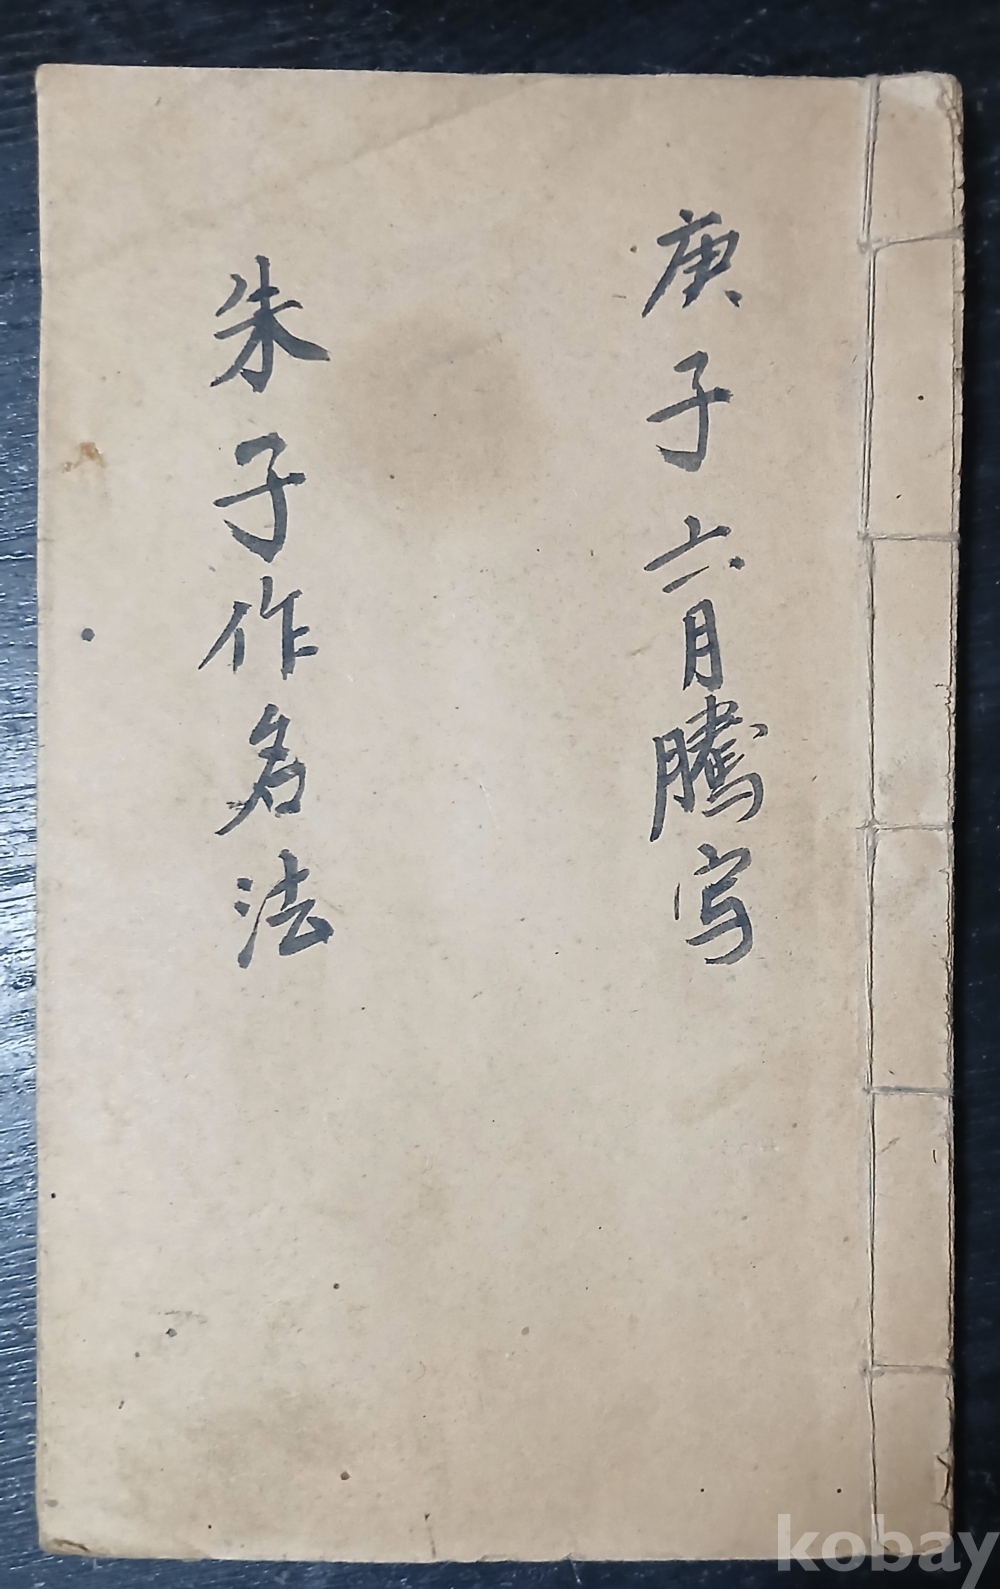 庚子六月腾写
朱子作名法
kobay